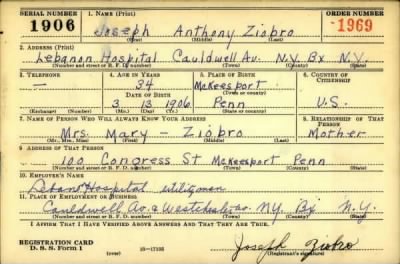 SERIAL NUMBER 1. NAME (Print) ORDER NUMBER
1906 Joseph Anthony Ziobro 1969
(First) (Middle) (Last)
2. ADDRESS (Print)
Lebanon Hospital Cauldwell Av. N.Y. Bx N.Y.
(Number and street or R. F. D. number) (Town) (County) (State)
3. TELEPHONE 4. AGE IN YEARS 5. PLACE OF BIRTH 6. COUNTRY OF CITIZENSHIP
— 34 McKeesport
(Town or county)
DATE OF BIRTH
3 13 1906 Penn U.S.
(Exchange) (Number) (Mo.) (Day) (Yr.) (State or country)
7. NAME OF PERSON WHO WILL ALWAYS KNOW YOUR ADDRESS 8. RELATIONSHIP OF THAT PERSON
Mrs. Mary - Ziobro Mother
(Mr., Mrs., Miss) (First) (Middle) (Last)
9. ADDRESS OF THAT PERSON
100 Congress St McKeesport Penn
(Number and street or R. F. D. number) (Town) (County) (State)
10. EMPLOYER'S NAME
Hospital utilityman
11. PLACE OF EMPLOYMENT OR BUSINESS
Cauldwell Av. & Westchester av. NY. Bx N.Y.
(Number and street or R. F. D. number) (Town) (County) (State)
I AFFIRM THAT I HAVE VERIFIED ABOVE ANSWERS AND THAT THEY ARE TRUE.
REGISTRATION CARD
D. S. S. Form 1 (over) 16—17105 Joseph Ziobro
(Registrant's signature)